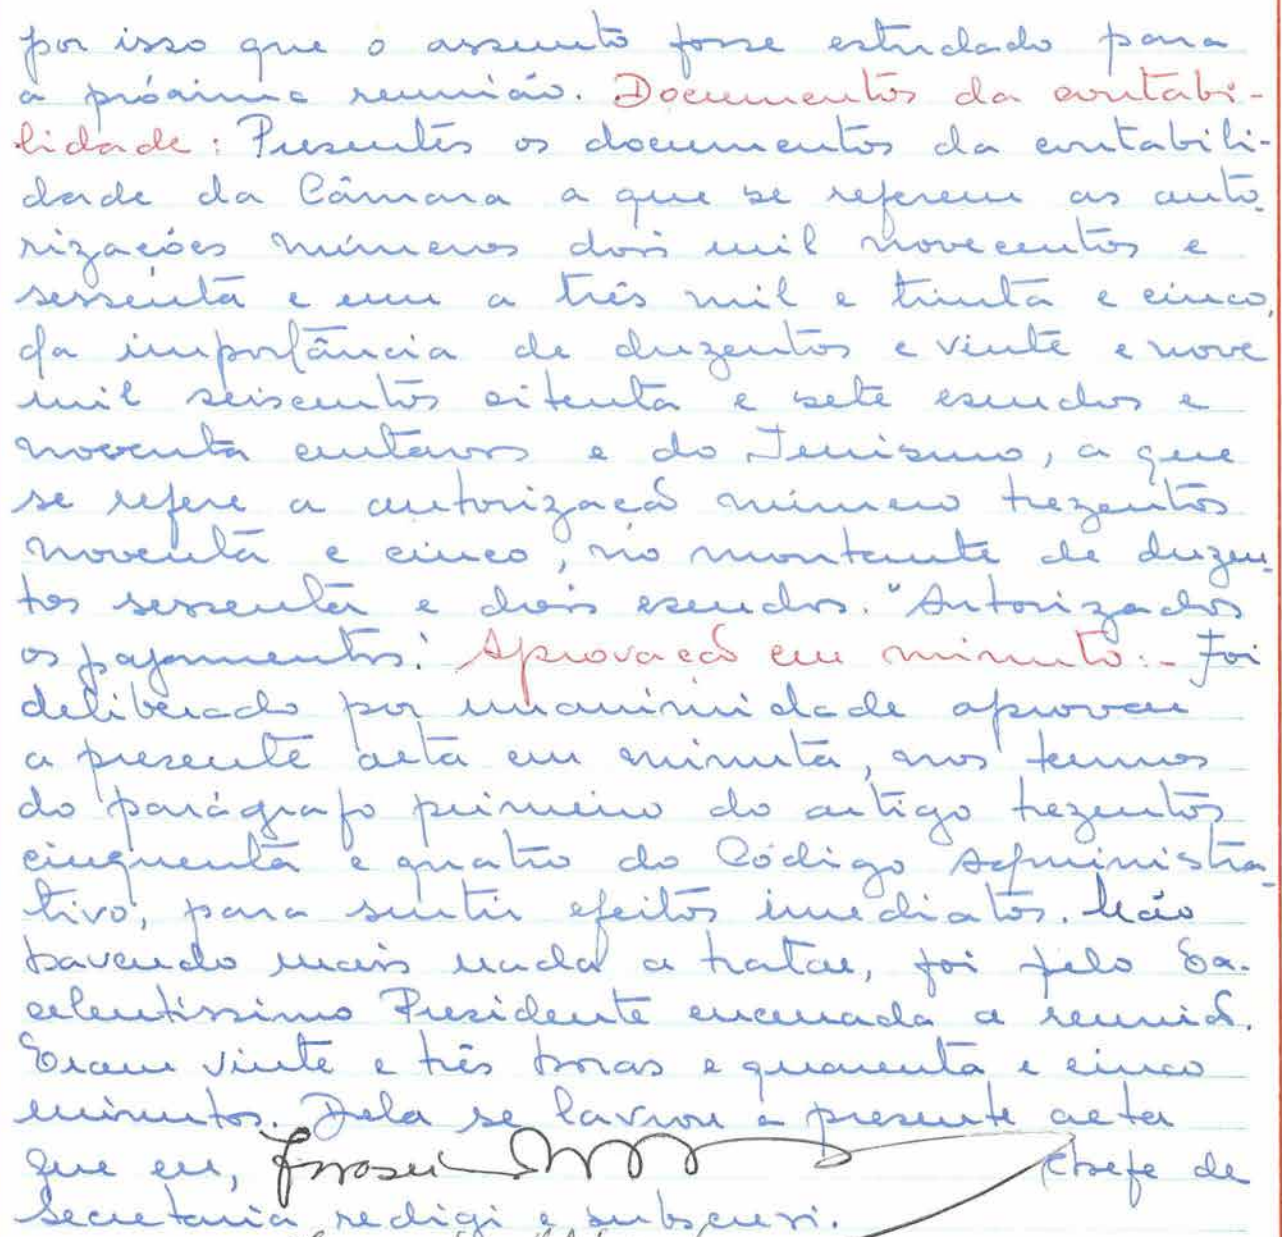 por isso que o assunto fosse estudado para
a próxima reunião. Documentos da contabi-
lidade: Presentes os documentos da contabili-
dade da Câmara a que se referem as auto-
rizações números dois mil novecentos e
sessenta e um a três mil e trinta e cinco,
da importância de duzentos e vinte e nove
mil seiscentos oitenta e sete escudos e
noventa centavos e do Turismo, a que
se refere a autorização número trezentos
noventa e cinco, no montante de duzen-
tos sessenta e dois escudos. "Autorizados
os pagamentos." Aprovação em minuta:- Foi
deliberado por unanimidade aprovar
a presente acta em minuta, nos termos
do parágrafo primeiro do artigo trezentos
cinquenta e quatro do Código Administra-
tivo, para surtir efeitos imediatos. Não
havendo mais nada a tratar, foi pelo Ex-
celentíssimo Presidente encerrada a reunião.
Eram vinte e três horas e quarenta e cinco
minutos. Dela se lavrou a presente acta
que eu, Chefe de
Secretaria redigi e subscrevi.